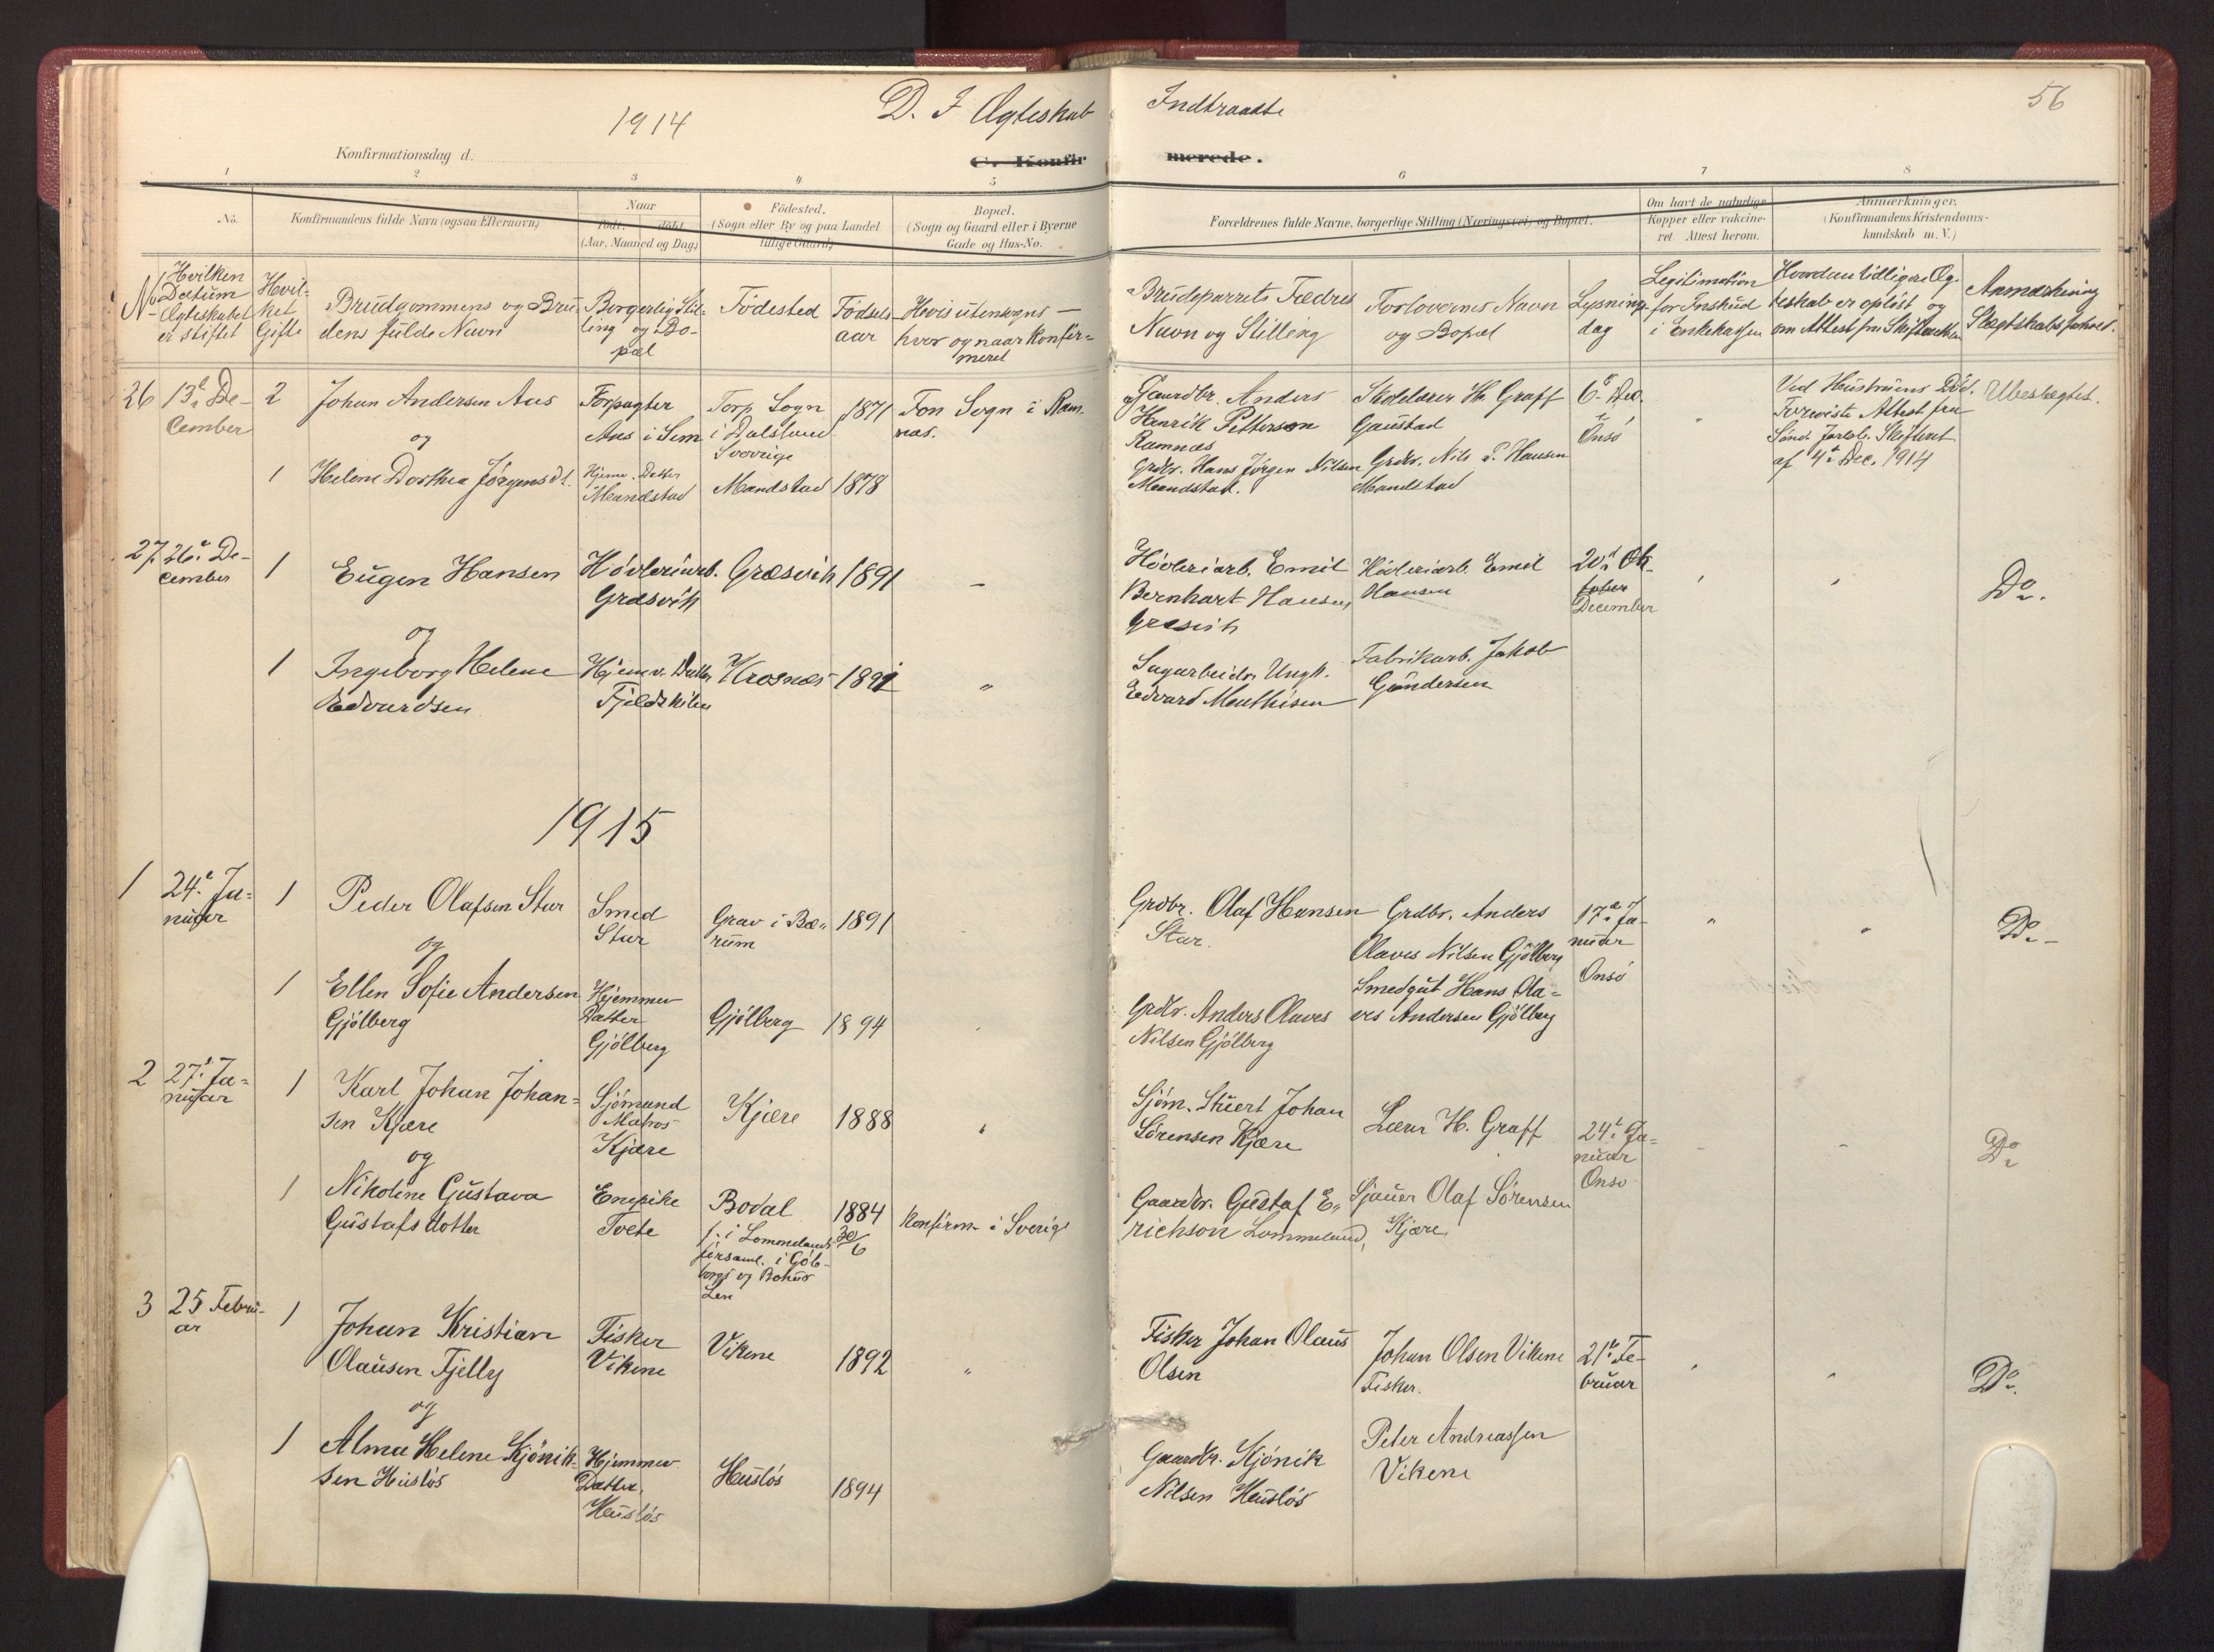 1914
D. I Ægteskab Indtraadte
56
Konfirmationsdag d.
C. Konfirmerede.
1 2 3 4 5 6 7 8
No.
Konfirmandens fulde Navn (ogsaa Efternavn)
Naar
født. døbt.
(Aar, Maaned og Dag)
Fødested.
(Sogn eller By og paa Landet
tillige Gaard)
Bopæl.
(Sogn og Gaard eller i Byerne
Gade og Hus-No.
Forældrenes fulde Navne, borgerlige Stilling (Næringsvei) og Bopæl.
Om havt de naturlige
Kopper eller vakcine-
ret. Attest herom.
Anmærkninger.
(Konfirmandens Kristendoms-
kundskab m. V.)
No
Hvilken
Datum
Ægteskabet
er stiftet
Hvil-
ket
Gifte
Brudgommens og Bru-
dens fulde Navn
Borgerlig Stil-
ling og Bo-
pæl
Födested
Födsels-
aar
Hvis utensogns —
hvor og naar konfir-
meret
Brudeparrets Fædres
Navn og Stilling
Forlovernes Navn
og Bopæl
Lysnings-
dag
Legitimation
for Inskud
i Enkekassen
Hvordan tidligere Æg-
teskab er oplöst og
om Attest fra Skifteretten
Anmærkning
Slægtskabsforhold.
26
13d De-
cember
2
Johan Andersen Aas
og
Forpagter
Aas i Sem
Torp Sogn
i Dalsland
Sverrige
1871
Fon Sogn i Ram-
nas.
Gaardbr. Anders
Henrik Petterson
Ramnæs
Skolelærer H. Graff
Gaustad
6d Dec.
Onsö
"
Ved Hustruens Död.
Foreviste Attest fra
Sönd. Jarlsb. Skifteret
af 4d Dec. 1914
Ubeslægtet.
1
Helene Dorthea Jörgensdt.
Hjemv. Datter
Mandstad
Mandstad
1878
Grdbr. Hans Jörgen Nilsen
Mandstad.
Grdbr. Nils P. Hansen
Mandstad
27.
26d De-
cember
1
Eugen Hansen
og
Hövleriarb.
Græsvik
Græsvik
1891
–
Hövleriarb. Emil
Bernhart Hansen,
Græsvik
Hövleriarb. Emil
Hansen
20d Ok-
tober
December
Do.
1
Ingeborg Helene
Edvardsen
Hjemv. Datter
Fjeldskilen
Krosnæs
1891
"
Sagarbeider, Ungk.
Edvard Mathisen
Fabrikarb. Jakob
Gundersen
1915
1
24d Ja-
nuar
1
Peder Olafsen Stur
og
Smed
Stur
Grav i Bæ-
rum
1891
Grdbr. Olaf Hansen
Stur.
Grdbr. Anders
Olaves Nilsen Gjölberg
17d Ja-
nuar
Onsö
"
Do –
1
Ellen Sofie Andersen
Gjölberg
Hjemmev
Datter
Gjölberg
Gjölberg
1894
Grdbr. Anders Olaves
Nilsen Gjölberg
Smedgut Hans Ola-
ves Andersen Gjölberg
2
27d Ja-
nuar
1
Karl Johan Johan-
sen Kjære
og
Sjömand
Matros
Kjære
Kjære
1888
"
Sjöm. Stuert Johan
Sörensen Kjære
Lærer H. Graff
24d Ja-
nuar
Onsö
Do
1
Nikoline Gustava
Gustafsdotter
Enepike
Tvete
Bodal
f. i Lommelands
församl. i Göte-
borgs og Bohus
Len
1884
30/6
Konfirm. i Sverige
Gaardbr. Gustaf E-
richson Lommeland,
Sjauer Olaf Sörensen
Kjære
3
25 Febru-
ar
1
Johan Kristian
Olausen Fjelly
og
Fisker
Vikene
Vikene
1892
"
Fisker Johan Olaus
Olsen
Johan Olsen Vikene
Fisker.
21d Fe-
bruar
Do.
1
Alma Helene Kjönik-
sen Huslös
Hjemmev
Datter.
Huslös
Huslös
1894
Gaardbr. Kjönik
Nilsen Huslös
Peter Andreassen
Vikene